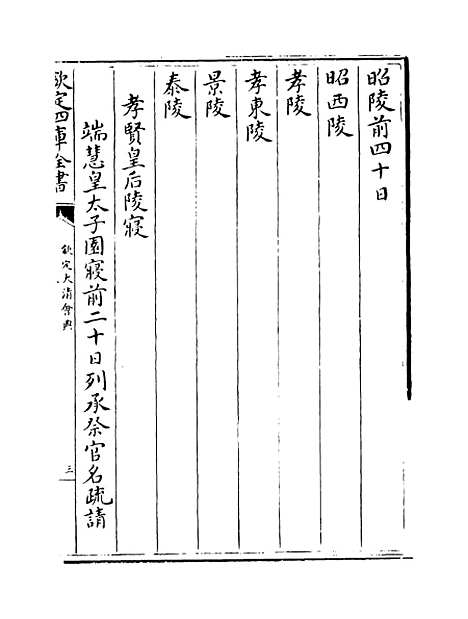 昭陵前四十日
昭西陵
孝陵
孝東陵
景陵
泰陵
孝賢皇后陵寢
端慧皇太子園寢前二十日列承祭官名疏請
欽定四庫全書
欽定大清會典
三